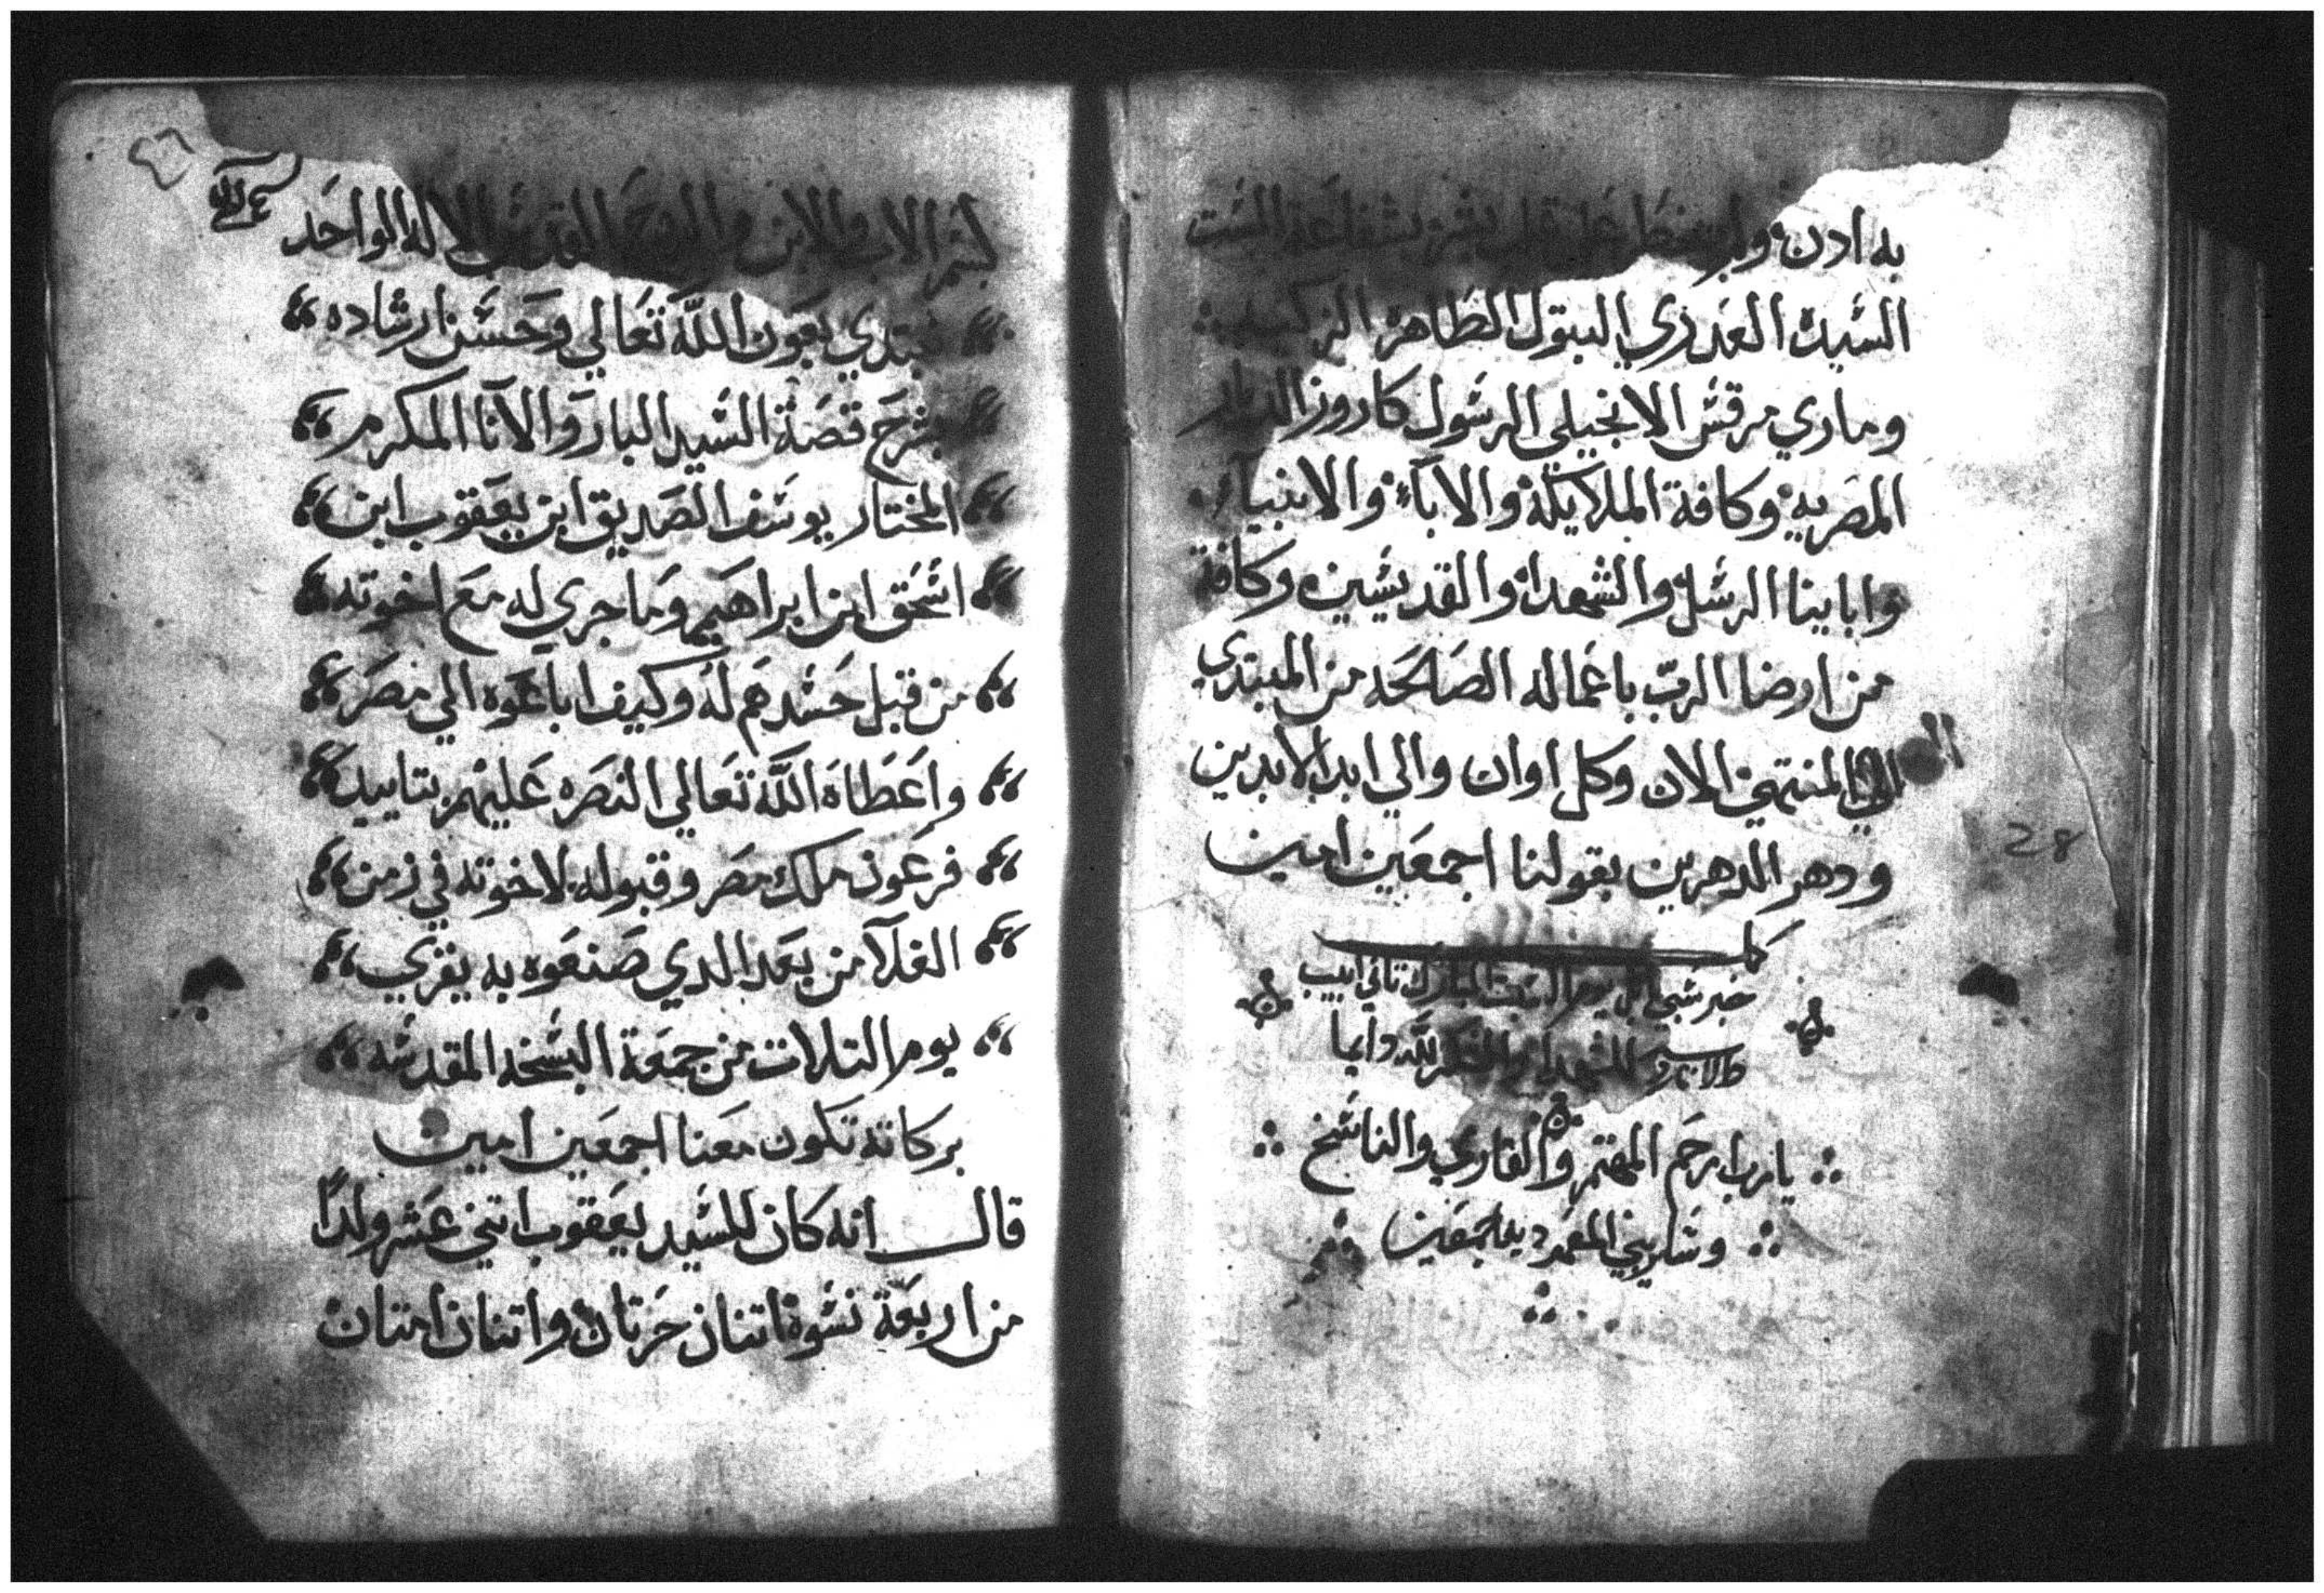 به ادن ولم يخطر على قلب بشر بشفاعة الست
السيدة العدري البتول الطاهره الزكيه
وماري مرقس الانجيلي الرسول كاروز الديار
المصريه وكافة الملايكة والاباء والانبياء
وابايينا الرسل والشهدا والقديسين وكافة
من ارضا الرب باعماله الصالحه من المبتدي
الي المنتهي الان وكل اوان والي ابد الابدين
ودهر الداهرين بقولنا اجمعين امين
كمل
يوم السبت المبارك تاني ابيب
للشهدا والشكر لله دايما
يارب ارحم المهتم والقاري والناسخ
وساير بني المعموديه اجمعين
28
بسم الاب والابن والروح القدس الاله الواحد
نبتدي بعون الله تعالي وحسن ارشاده
بشرح قصة السيد البار والانا المكرم
المختار يوسف الصديق ابن يعقوب ابن
اسحق ابن ابراهيم وما جري له مع اخوته
من قبل حسدهم له وكيف اباعوه الي مصر
واعطاه الله تعالي النصره عليهم بتاييد
فرعون ملك مصر وقبوله لاخوته في زمن
الغلا من بعد الدي صنعوه به يقري
يوم التلات من جمعة البسخه المقدسه
بركاته تكون معنا اجمعين امين
قال انه كان للسيد يعقوب اتني عشر ولدًا
من اربعة نسوة اتنان حرتان واتنان امتان